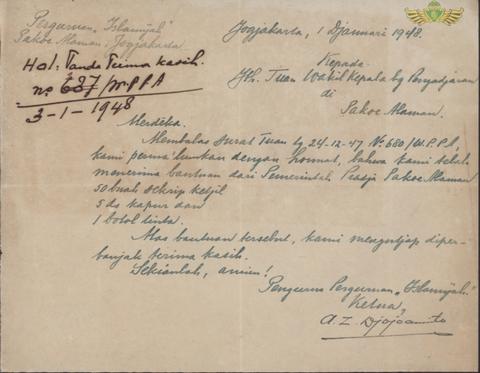 Perguruan „Islamijah"
Pakoe Alaman, Jogjakarta
Hal: Tanda Terima kasih.
No 687/W.P.P.A
3-1-1948
Jogjakarta, 1 Djanuari 1948.
Kepada
Jth. Tuan Wakil Kepala bg Pengadjaran
di
Pakoe Alaman.
Merdeka.
Membalas surat Tuan bg 24-12-47 No 680/W.P.P.A,
kami permaklumkan dengan hormat, bahwa kami telah
menerima bantuan dari Pemerintah Pradja Pakoe Alaman
50 buah sekrip ketjil
5 ds kapur dan
1 botol tinta.
Atas bantuan tersebut, kami mengutjap diper-
banjak terima kasih.
Sekianlah, amien!
Pengurus Perguruan „Islamijah"
Ketua,
A. Z.